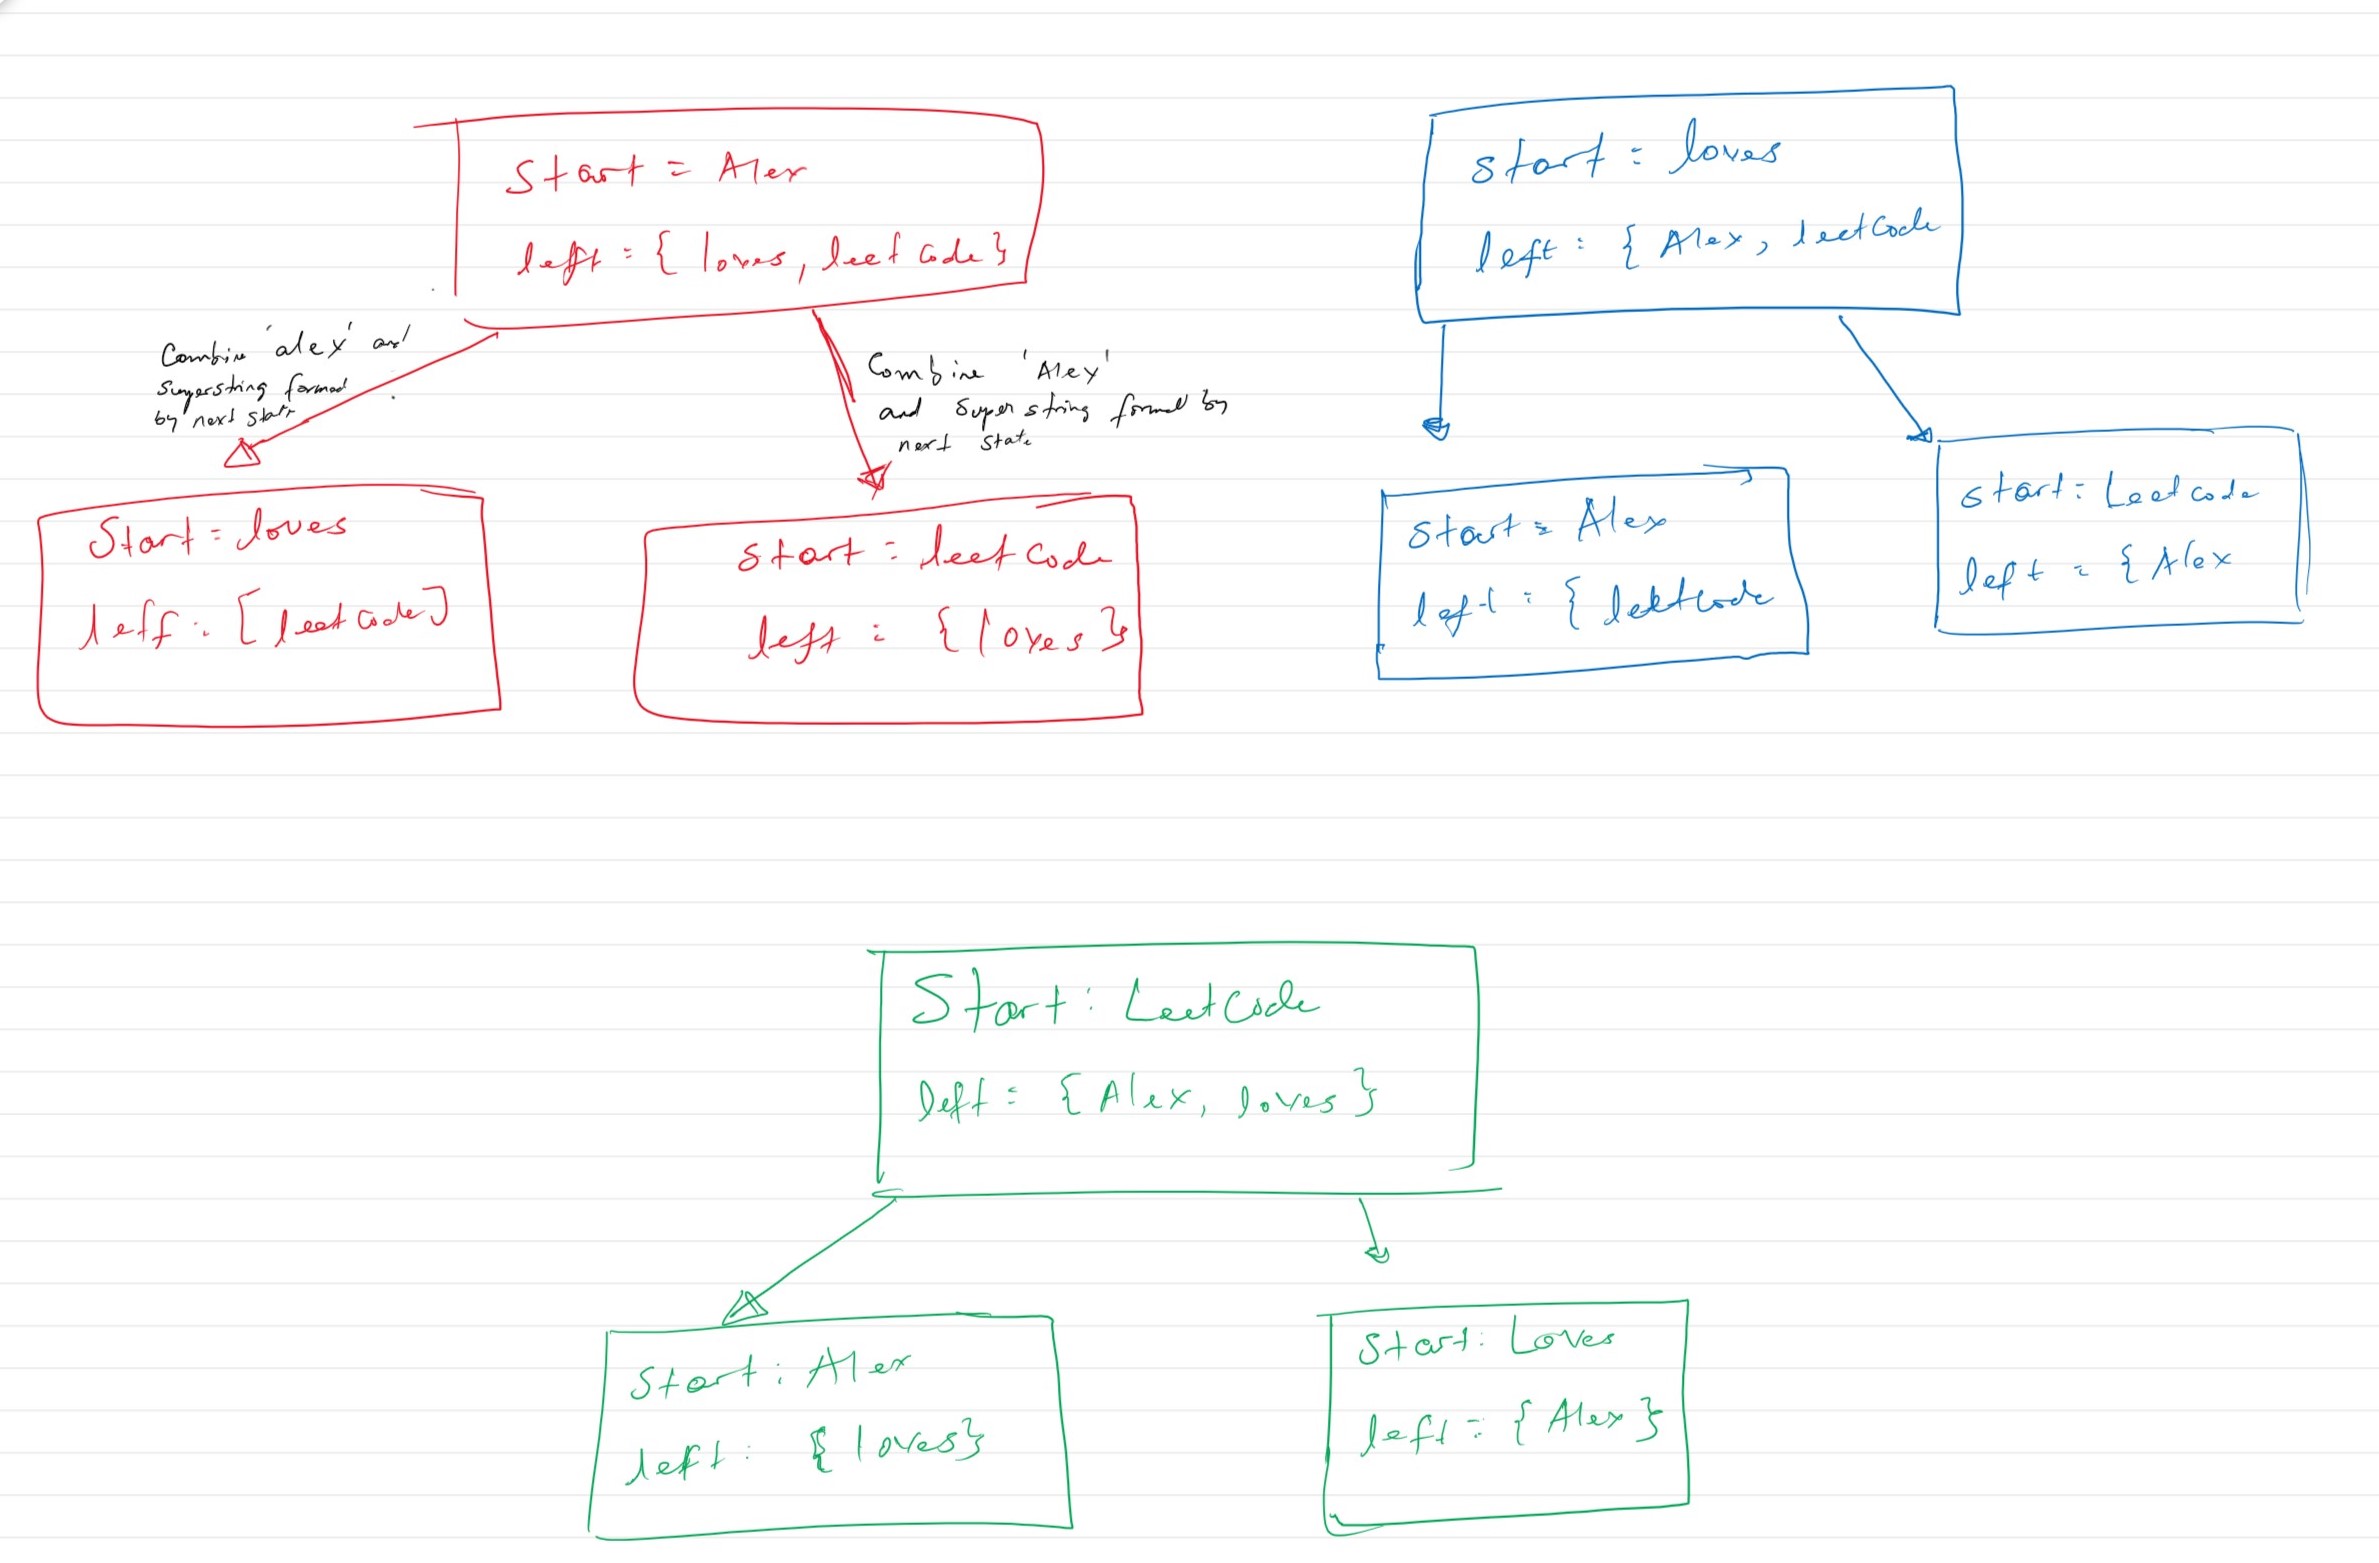 Start = Alex
left = { loves, leetcode}
Combine 'alex' and
superstring formed
by next state
Combine 'Alex'
and Super string formed by
next state
Start = loves
left : [leetcode]
Start = leetcode
left : {loves}
start : loves
left : { Alex, leetcode
start = Alex
left : { leetcode
start : Leetcode
left = { Alex
Start : LeetCode
left = { Alex, loves }
Start : Alex
left : { loves}
Start : Loves
left = { Alex }